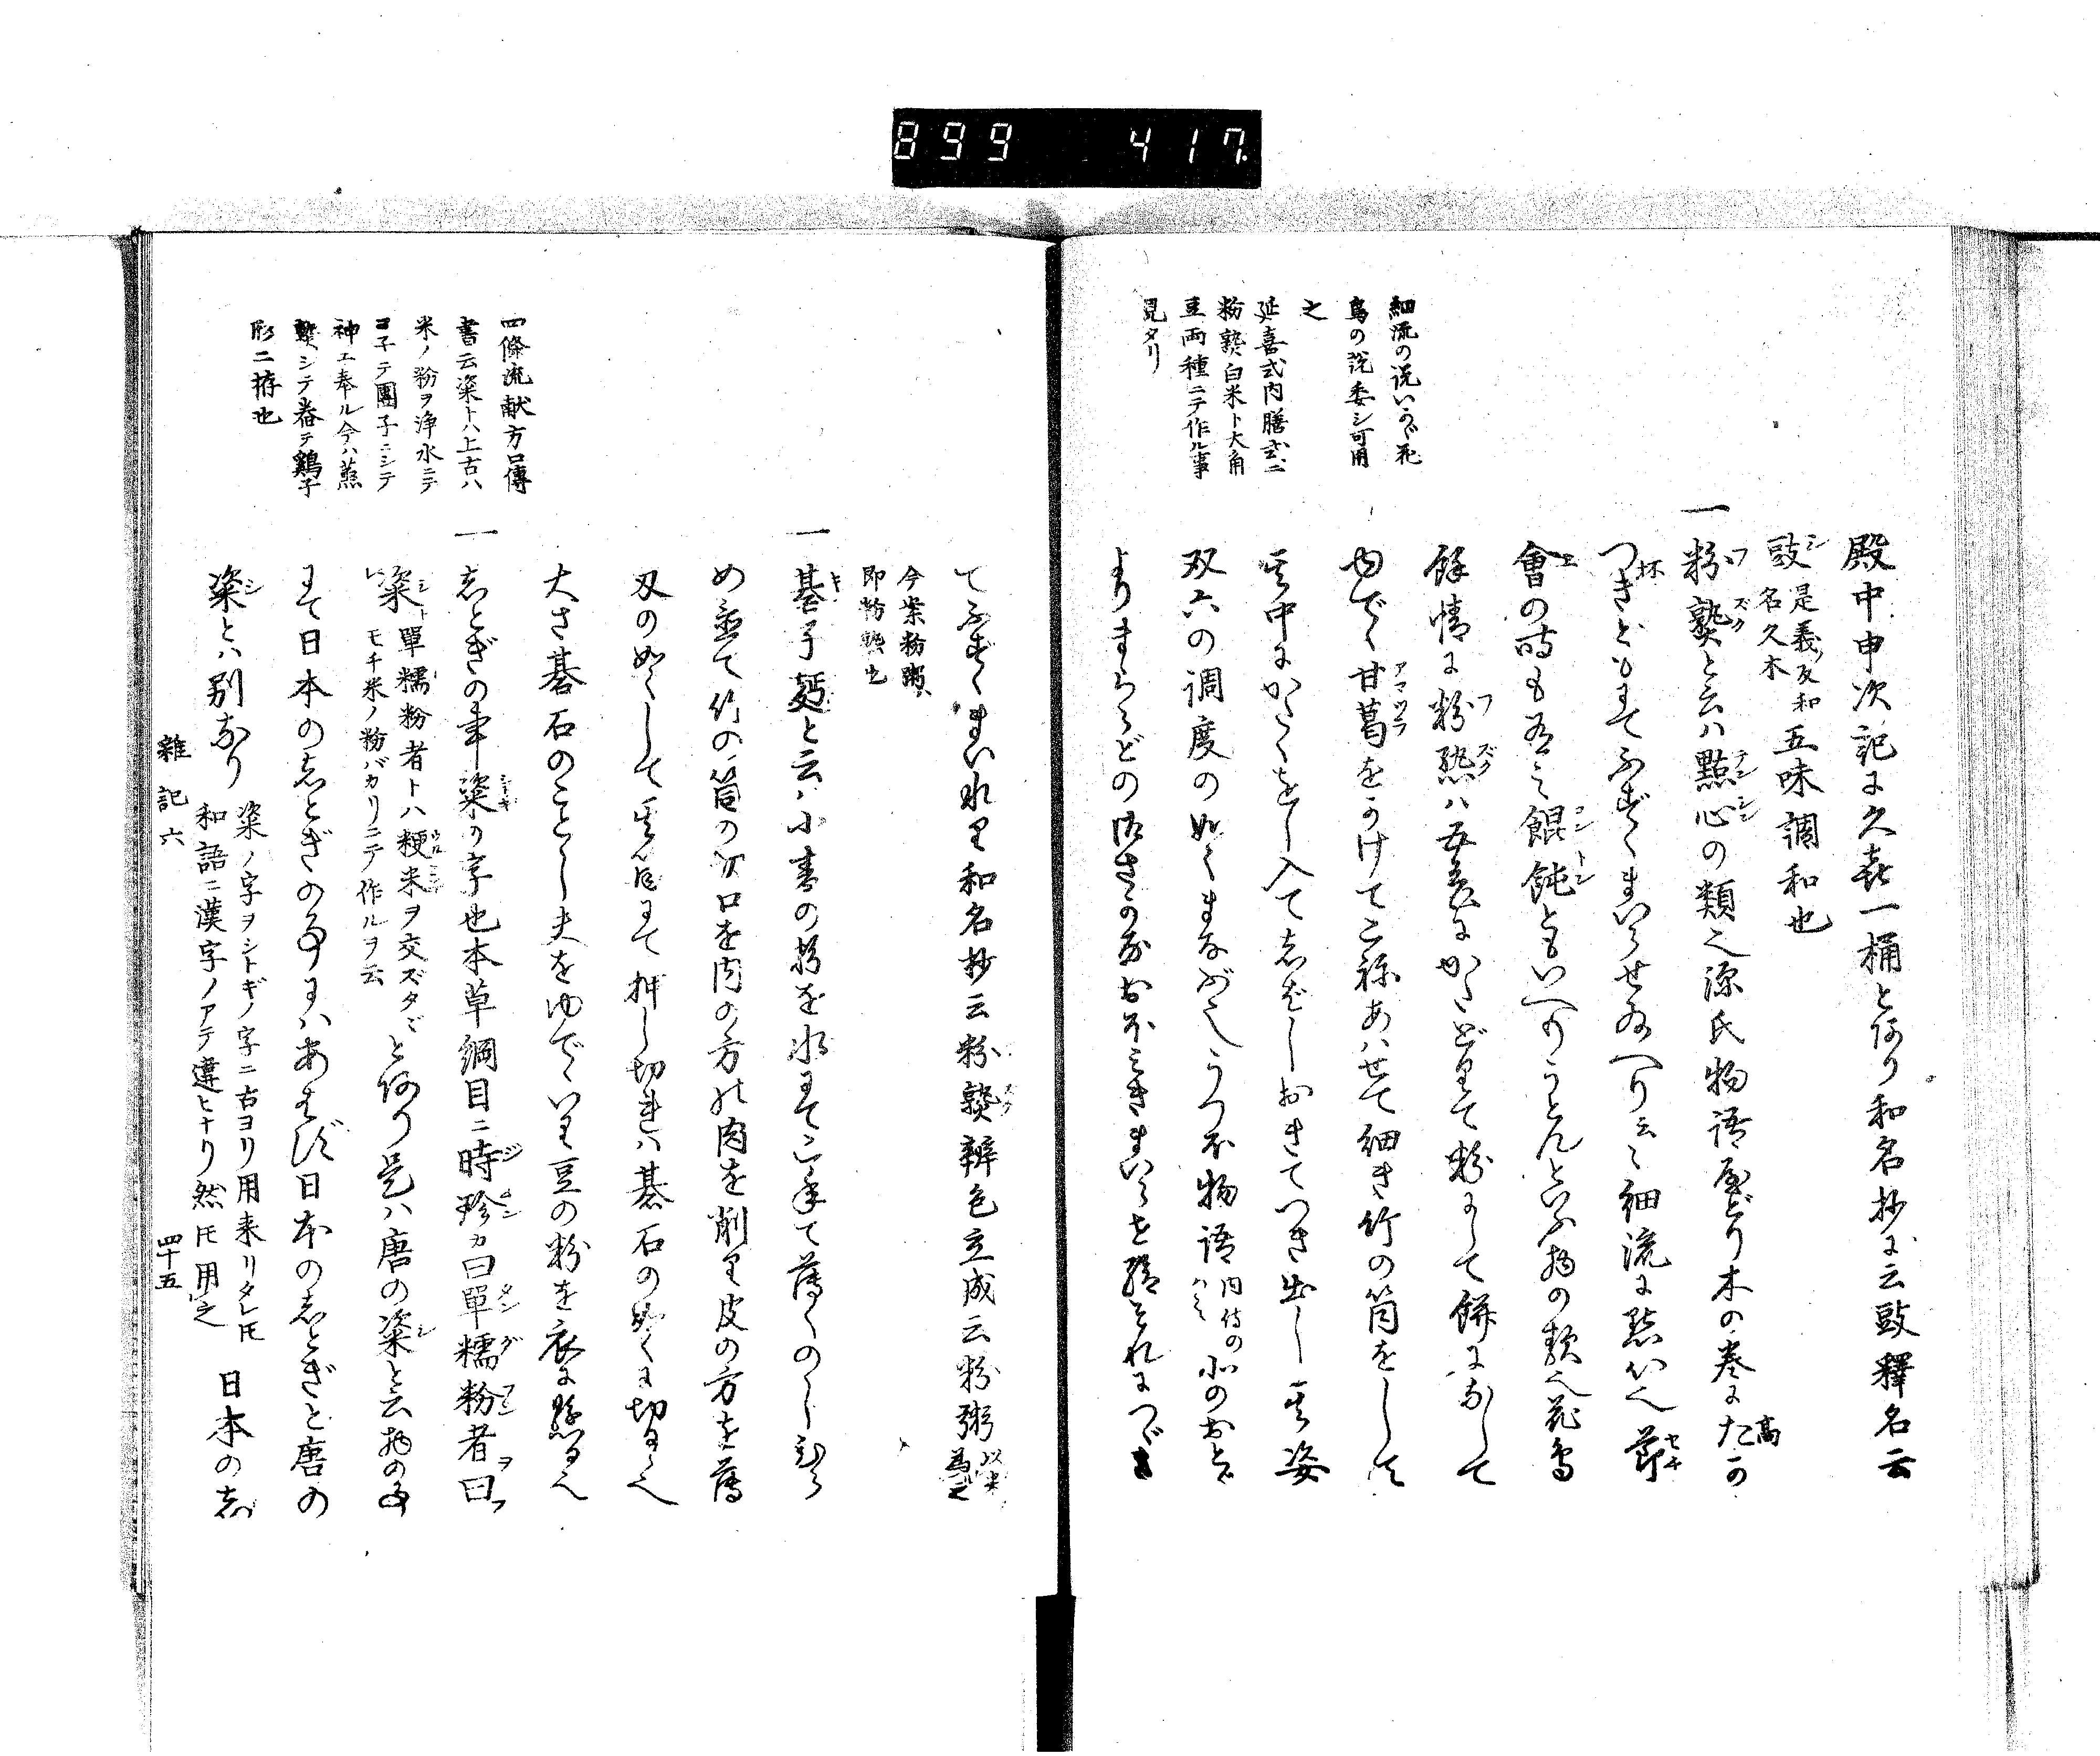 899 417
細流の説いかゞ花
鳥の説委シ可用
之
延喜式内膳式ニ
粉熟白米ト大角
豆両種ニテ作ル事
見タリ
殿中申次記に久喜一桶とあり和名抄に云豉釋名云
豉是義反和名久木五味調和也
一粉熟と云ハ點心の類也源氏物語屋どり木の巻にたか
つきどもにてふずくまいらせ給へり云々細流に點心也節
會の時も有之餛飩ともいへりうとんといふ物の類也花鳥
餘情に粉熟ハ五色にかたどりて粉にして餅になして
ゆでゝ甘葛をかけてこねあハせて細き竹の筒をして
其中にかたくをし入てしばしおきてつき出し其姿
双六の調度の如くまなぶ也うつほ物語内侍のかみ北のおとゞ
よりまらうどの御さかなおほみきまいらせ給それにつゞき
てふずくまいれり和名抄云粉熟辨色立成云粉粥以米為之
今案粉粥即粉熟也
一碁子麺と云ハ小麦の粉を水にてこねて薄くのしひら
め並て竹の筒の切口を肉の方の肉を削り皮の方を薄
刃の如くして其筒にて押し切れハ碁石の如くに切るゝ也
大さ碁石のことし夫をゆでゝいり豆の粉を衣に懸る也
一しとぎの事粢の字也本草綱目ニ時珍カ曰單糯粉者曰
粢單糯粉者トハ粳米ヲ交ズタヾモチ米ノ粉バカリニテ作ルヲ云とあり是ハ唐の粢と云物の事
にて日本のしとぎの事にハあらず日本のしとぎと唐の
粢とハ別なり粢ノ字ヲシトギノ字ニ古ヨリ用来リタレ𪜈和語ニ漢字ノアテ違ヒナリ然𪜈用之日本のし
四條流献方口傳
書云粢トハ上古ハ
米ノ粉ヲ浄水ニテ
コ子テ團子ニシテ
神エ奉ル今ハ蒸
熟シテ舂テ鶏子
形ニ拵也
雜記六
四十五